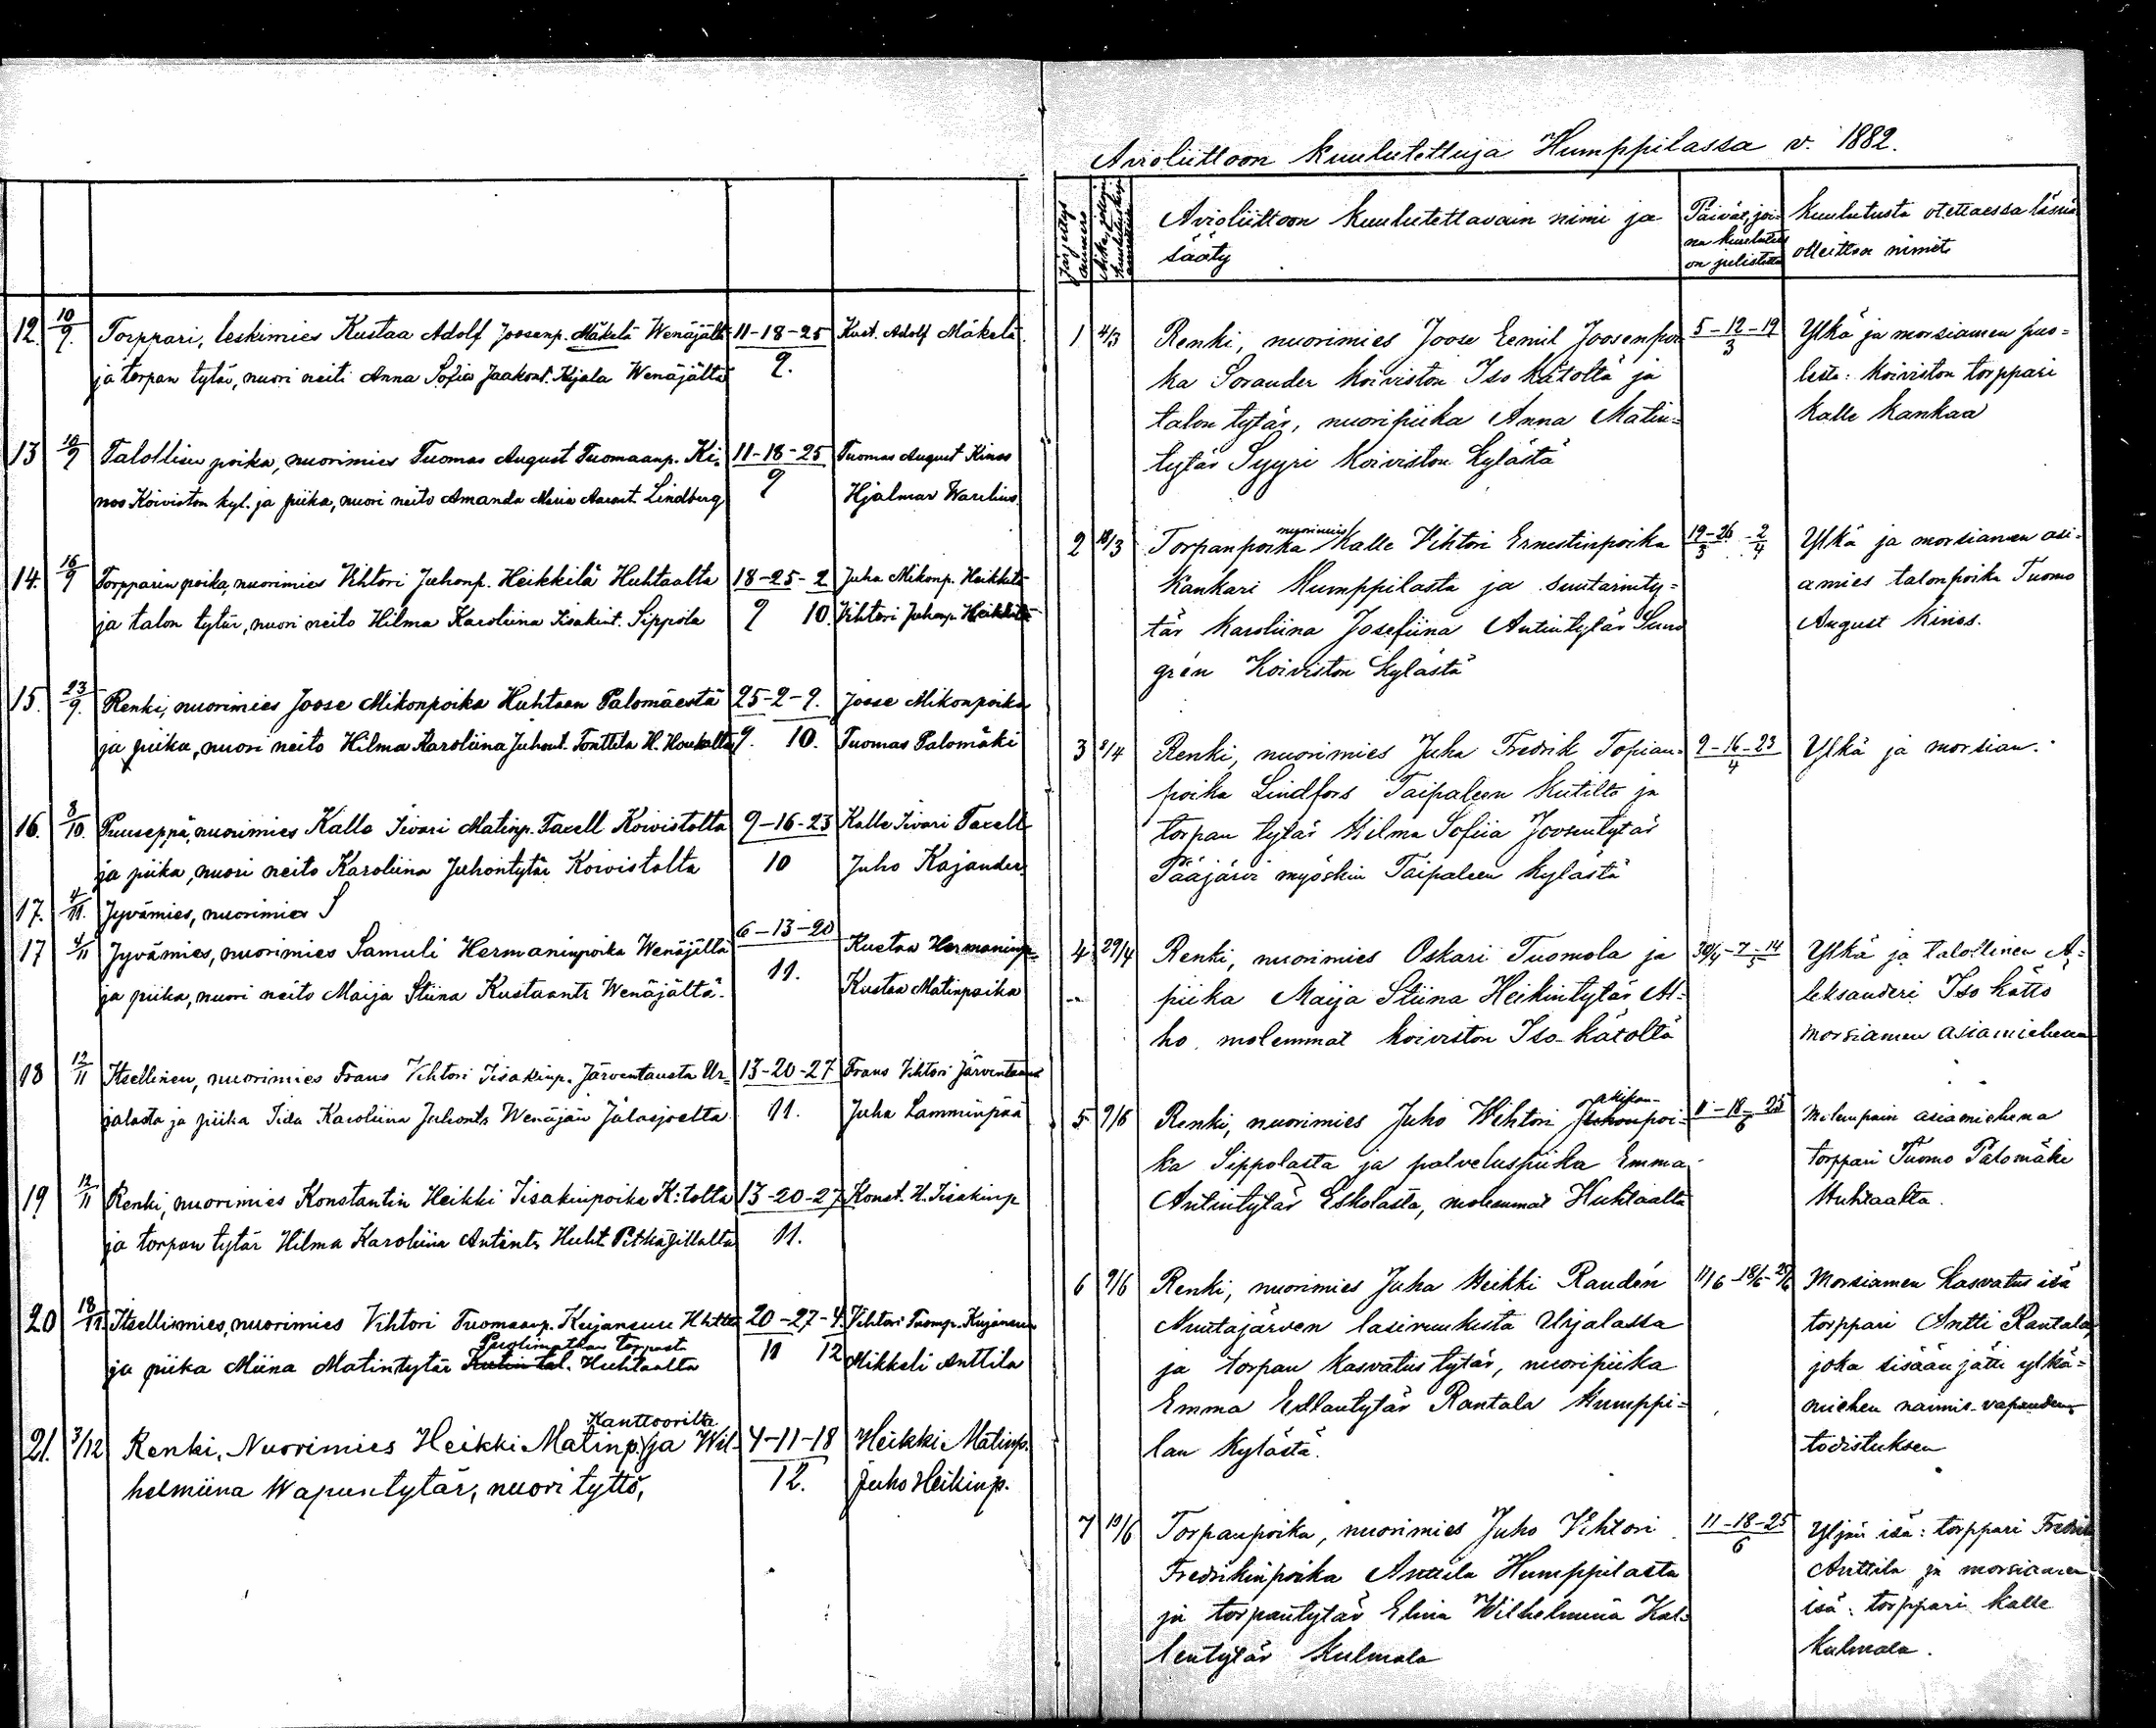 12. 10/9. Torppari, leskimies Kustaa Adolf Joosenp. Mäkelä Wenäjältä 11-18-25 Kust. Adolf Mäkelä
ja torpan tytär, nuori neiti Anna Sofia Jaakont. Kujala Wenäjältä 9.
13 10/9 Talollisen poika, nuorimies Tuomas August Tuomaanp. Ki- 11-18-25 Tuomas August Kinos
nos Koiviston kyl. ja piika, nuori neito Amanda Maria Lindberg 9 Hjalmar Warelius
14. 16/9 Torpparin poika, nuorimies Vihtori Juhonp. Heikkilä Huhtaalta 18-25-2 Juha Mikonp. Heikkilä
ja talon tytär, nuori neito Hilma Karoliina Iisakint. Sippola 9 10. Vihtori Juhonp. Heikkilä
15. 23/9. Renki, nuorimies Joose Mikonpoika Huhtaan Palomäestä 25-2-9. Joose Mikonpoika
ja piika, nuori neito Hilma Karoliina Juhont. Tonttila H. 9. 10. Tuomas Palomäki
16. 8/10. Puuseppä, nuorimies Kalle Iivari Matinp. Taxell Koivistolta 9-16-23 Kalle Iivari Taxell
ja piika, nuori neito Karoliina Juhontytär Koivistolta 10 Juho Kajander
17. 4/11. Jyvämies, nuorimies S
17 4/11 Jyvämies, nuorimies Samuli Hermaninpoika Wenäjältä 6-13-20 Kustaa Hermaninp.
ja piika, nuori neito Maija Stiina Kustaantr Wenäjältä. 11. Kustaa Matinpoika
18 12/11 Itsellinen, nuorimies Frans Vihtori Iisakinp. Järventausta Ur- 13-20-27 Frans Vihtori Järventausta
jalasta ja piika Iida Karoliina Juhontr Wenäjän Jalasjoelta 11. Juha Lamminpää
19 12/11 Renki, nuorimies Konstantin Heikki Iisakinpoika K:tolta 13-20-27 Konst. H. Iisakinp
ja torpan tytär Hilma Karoliina Antintr Huht. 11.
20 18/11. Itsellismies, nuorimies Vihtori Tuomaanp. Kujansuu 20-27-4 Vihtori Tuomp. Kujansuu
Puolimatkan torpasta
ja piika Miina Matintytär Kutin tal. Huhtaalta 11 12 Mikkeli Anttila
Kanttoorilta
21. 3/12 Renki, Nuorimies Heikki Matinp. ja Wil- 4-11-18 Heikki Matinp.
helmiina Wapuntytär, nuori tyttö, 12. Juho Heikinp.
Avioliittoon kuulutettuja Humppilassa v. 1882.
Järjestys numero
Avioliittoon kuulutettavain nimi ja Päivät, joi- Kuulutusta otettaessa läsnä
sääty na kuulutus on julistettu olleitten nimet
1 4/3 Renki, nuorimies Joose Eemil Joosenpoi 5-12-19 Ylkä ja morsiamen puo-
ka Sorander Koiviston Iso Kätöltä ja 3 lesta: Koiviston torppari
talon tytär, nuoripiika Anna Matin- Kalle Kankaa
tytär Syyri Koiviston kylästä
nuorimies
2 18/3 Torpanpoika Kalle Vihtori Ernestinpoika 19-26/3 - 2/4 Ylkä ja morsiamen asi-
Kankari Humppilasta ja suutarinty- amies talonpoika Tuomo
tär Karoliina Josefiina Antintytär Sund August Kinos.
grén Koiviston kylästä
3 8/4 Renki, nuorimies Juha Fredrik Topian- 9-16-23 Ylkä ja morsian.
poika Lindfors Taipaleen Kutilta ja 4
torpan tytär Hilma Sofiia Joosentytär
Pääjärvi myöskin Taipaleen kylästä
4 29/4 Renki, nuorimies Oskari Tuomola ja 30/4-7-14/5 Ylkä ja talollinen A-
piika Maija Stiina Heikintytär Al- leksanderi Iso Kättö
ho molemmat Koiviston Iso-Kätöltä morsiamen asiamiehenä
5 9/6 Renki, nuorimies Juho Wihtori Juhonpoi- 11-18-25 Molempain asiamiehenä
ka Sippolasta ja palveluspiika Emma 6 torppari Tuomo Palomäki
Antintytär Eskolasta, molemmat Huhtaalta Huhtaalta.
6 9/6 Renki, nuorimies Juha Heikki Randén 11/6-18/6-25/6 Morsiamen kasvatus isä
Nuutajärven lasiruukista Urjalassa torppari Antti Rantala
ja torpan kasvatus tytär, nuoripiika joka sisään jätti ylkä-
Emma Edlantytär Rantala Humppi- miehen naimis-vapauden
lan kylästä. todistuksen
7 10/6 Torpanpoika, nuorimies Juho Vihtori 11-18-25 Yljän isä: torppari Fredrik
Fredrikinpoika Anttila Humppilasta 6 Anttila ja morsiamen
ja torpantytär Elina Wilhelmiina Kal- isä: torppari Kalle
lentytär Kulmala Kulmala.